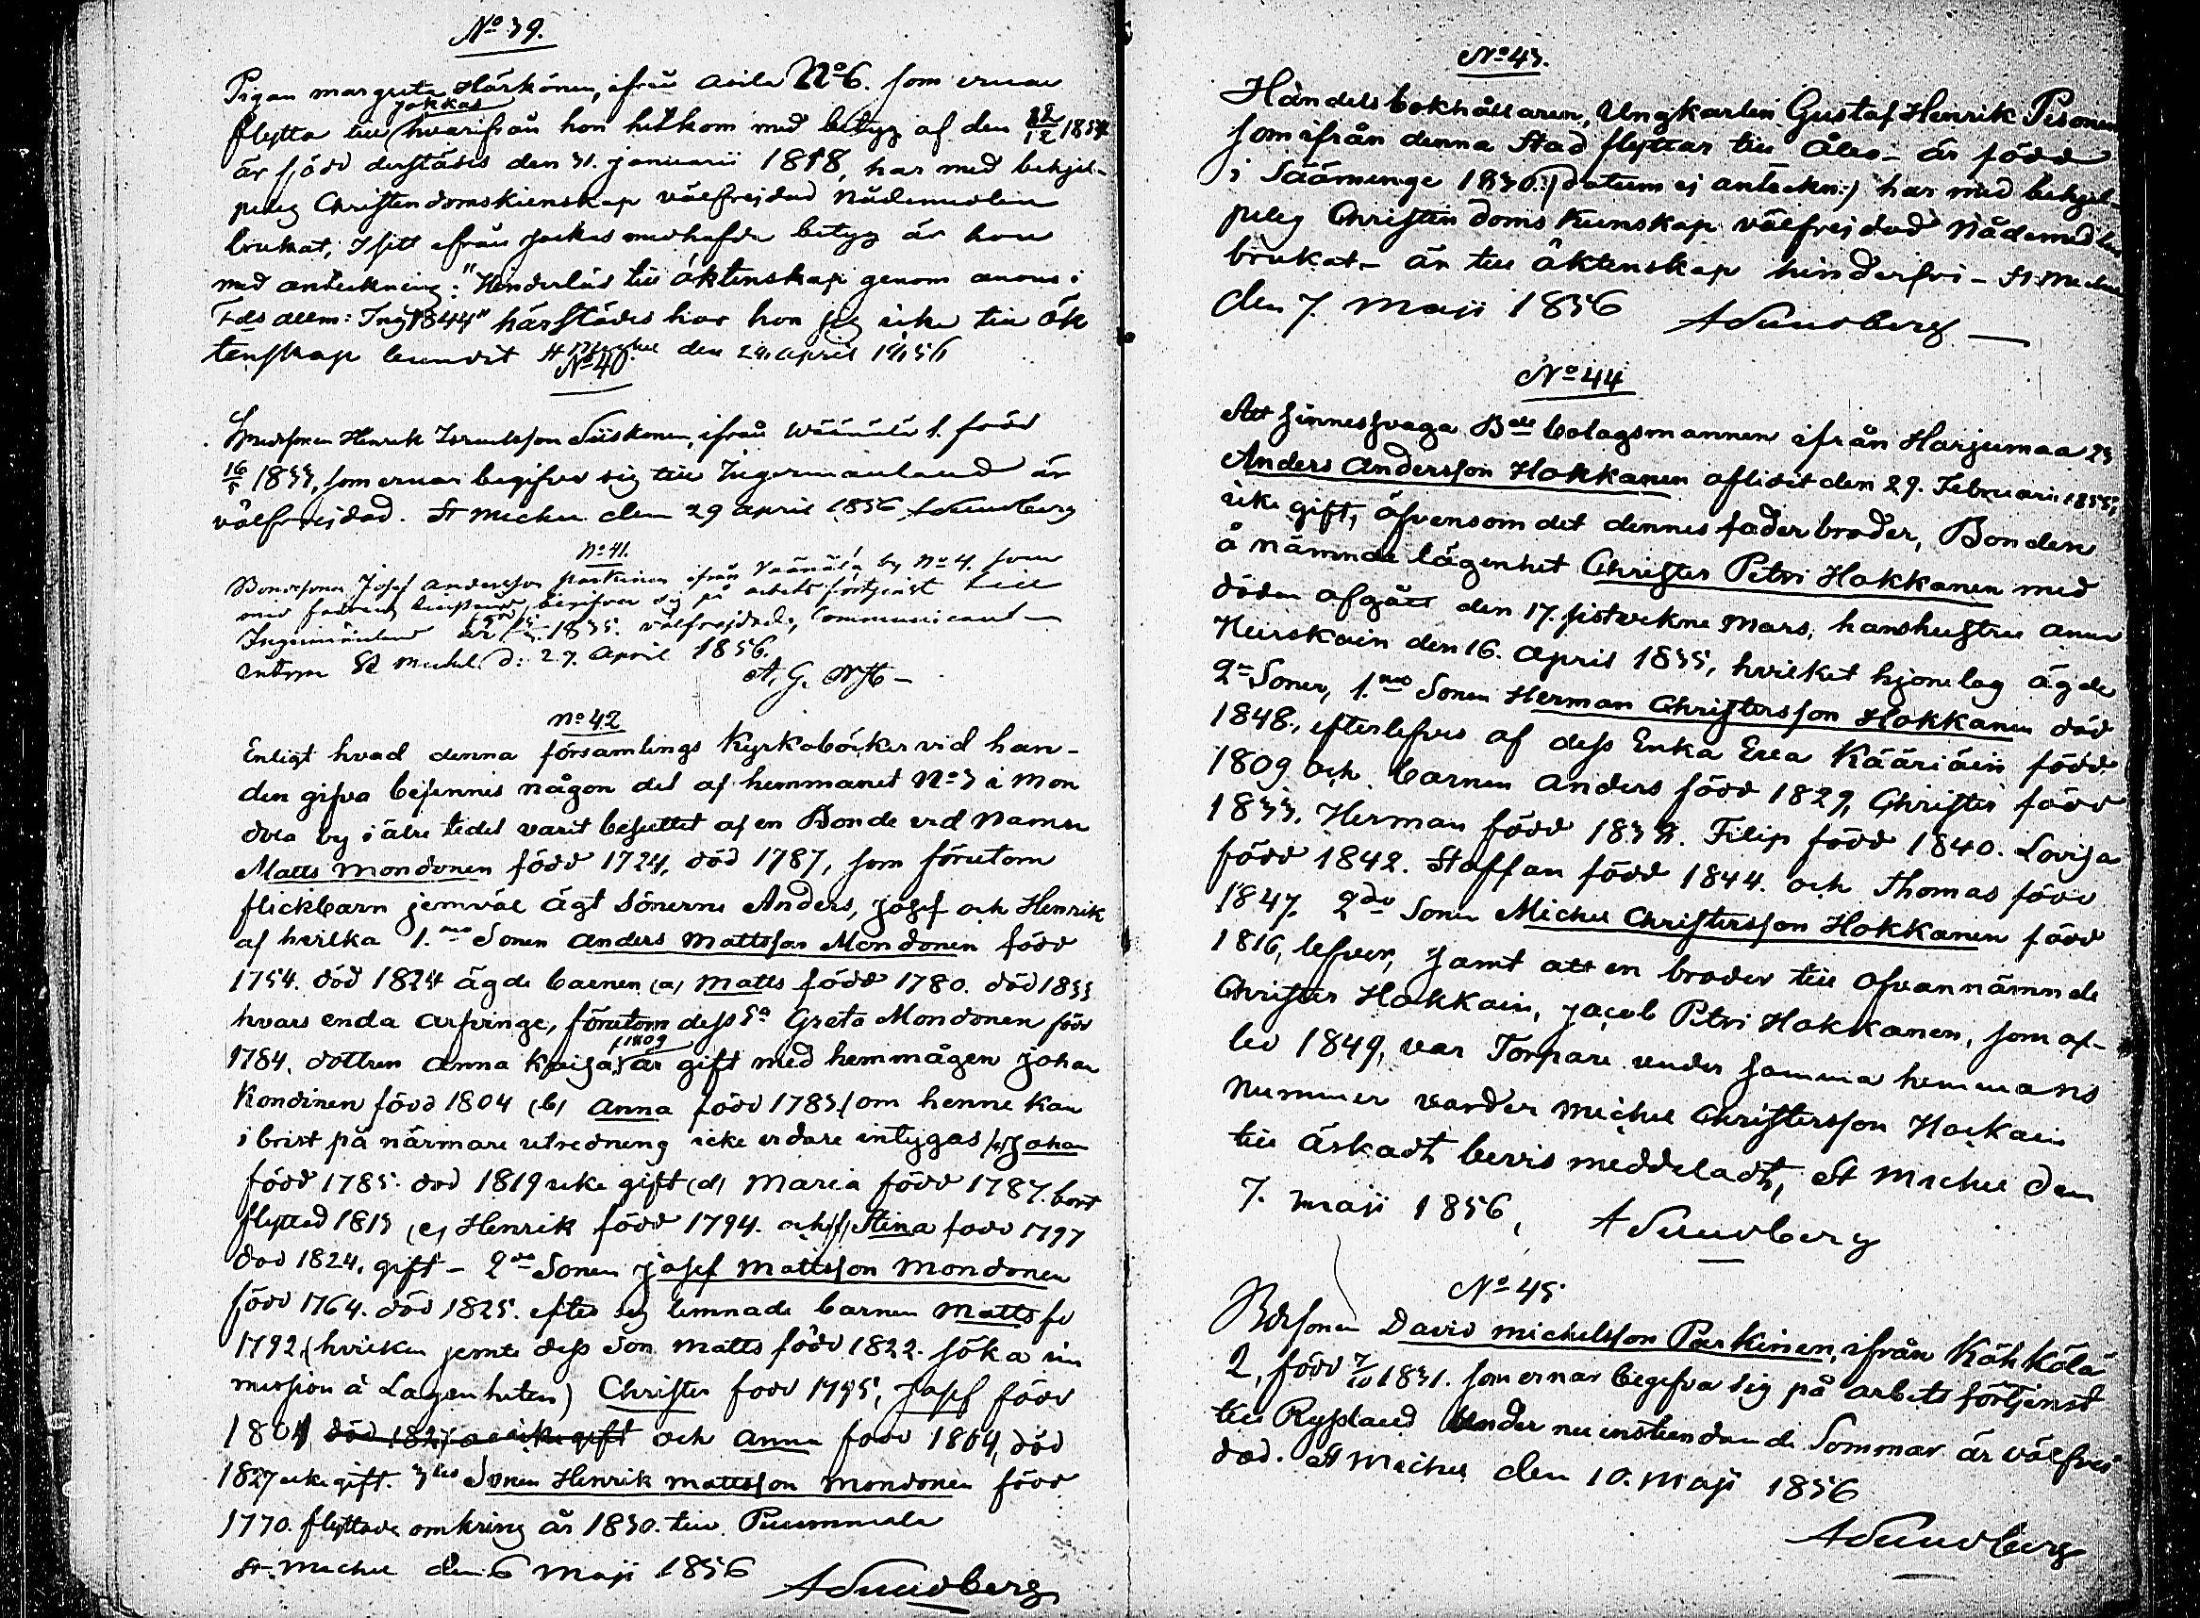 No 39.
Pigan margreta Härkönen, ifrån Asila No 6. som ernar
Jokkas
flytta till hvarifrån hon hitkom med betyg af den 12 1854
är född derstädes den 31. januarii 1818, har med behjel-
pelig Christendomskienskap välfrejdad Nådemedlen
brukat, I sitt ifrån Jockas medhafde betyg är hon
med anteckning: "Hinderlös till äktenskap genom
allm: 1844" härstädes har hon sig icke till äk
tenskap bundit St Michel den 29 april 1856
No 40
Henrik Siiskonen, ifrån Wäänälä 1. född
16/5 1833, som ernar begifva sig till Ingermanland är
välfrejdad. St Michel den 29 april 1856 ASundberg
No 41.
Bondesonen Josef andersson parkinen ifrån Väänälä by No 4. som
med begifver sig på arbets förtjenst till
Ingermanland är 1835. välfrejdad, Communicant
St Michel d: 27. April 1856.
A. G.
No 42
Enligt hvad denna församlings Kyrkoböcker vid han-
den gifva befinnes någon del af hemmanet No 3 i Mon
dola by i äldre tider varit besuttet af en Bonde vid Namn
Matts Mondonen född 1724, död 1787, som förutom
flickbarn jemväl ägt Sönerne Anders, Josef och Henrik
af hvilka 1.mo Sonen Anders Mattsson Mondonen född
1754. död 1824 ägde barnen (a) Matts född 1780. död 1833
hvars enda arfvinge, förutom dess Greta Mondonen född
f. 1809
1784. dottren Anna Kaisa, är gift med hemmågen Johan
Kondinen född 1804 (b) Anna född 1783 (om henne kan
i brist på närmare utredning icke vidare intygas) (c) Johan
född 1785. död 1819 icke gift (d) Maria född 1787. bort
flyttad 1813 (e) Henrik född 1794. och (f) Stina född 1797
död 1824, gift - 2do Sonen Josef Mattsson Mondonen
född 1764. död 1825. efter sig lemnade barnen Matts fö
1792 (hvilken jemte dess Son Matts född 1822. söka im
mission å Lägenheten) Christer född 1795, Josef född
1801 död 1827 icke gift och Anna född 1804, död
1827 icke gift. 3tio Sonen Henrik Mattsson Mondonen född
1770. flyttade omkring år 1830. till Puummala
St. Michel den 6 Maji 1856 ASundberg
No 43.
Handels bokhållaren, Ungkarlen Gustaf Henrik Pesonen
som ifrån denna Stad flyttar till Åbo - är född
i Säämenge 1830. (datum ej anteckn:) har med behjel-
pelig Christendoms kunskap välfrejdad Nådemedlen
brukat - är till äktenskap hinderfri - St Michel
den 7. Maji 1856 ASundberg
No 44
Att sinnessvaga Bde bolagsmannen ifrån Harjumaa 23
Anders Andersson Hokkanen aflidit den 29. Februarii 1855,
icke gift, äfvensom det dennes faderbroder, Bonden
å nämnde lägenhet Christer Petri Hokkanen med
döden afgått den 17. sistvekne Mars, hans hustru Anna
Heiskain den 16. April 1835, hvilket hjonelag ägde
2ne Söner, 1.mo Sonen Herman Christersson Hokkanen död
1848, efterlefves af dess Enka Eva Kääriäin född
1809 och barnen Anders född 1829, Christer född
1833. Herman född 1838. Filip född 1840. Lovisa
född 1842. Staffan född 1844. och Thomas född
1847. 2do Sonen Michel Christersson Hokkanen född
1816, lefver, Jamt att en broder till ofvannämnde
Christer Hokkain, Jacob Petri Hokkanen, som af-
led 1849, var Torpare under samma hemmans
nummer varder Michel Christersson Hokkain
till äskadt bevis meddeladt, St Michel den
7. Maji 1856, ASundberg
No 45.
Bdesonen David Michelsson Parkinen, ifrån Kähkölä
2, född 7/10 1831. som ernar begifva sig på arbets förtjenst
till Ryssland under nu instundande Sommar är välfrej
dad. St Michel den 10. Maji 1856
ASundberg